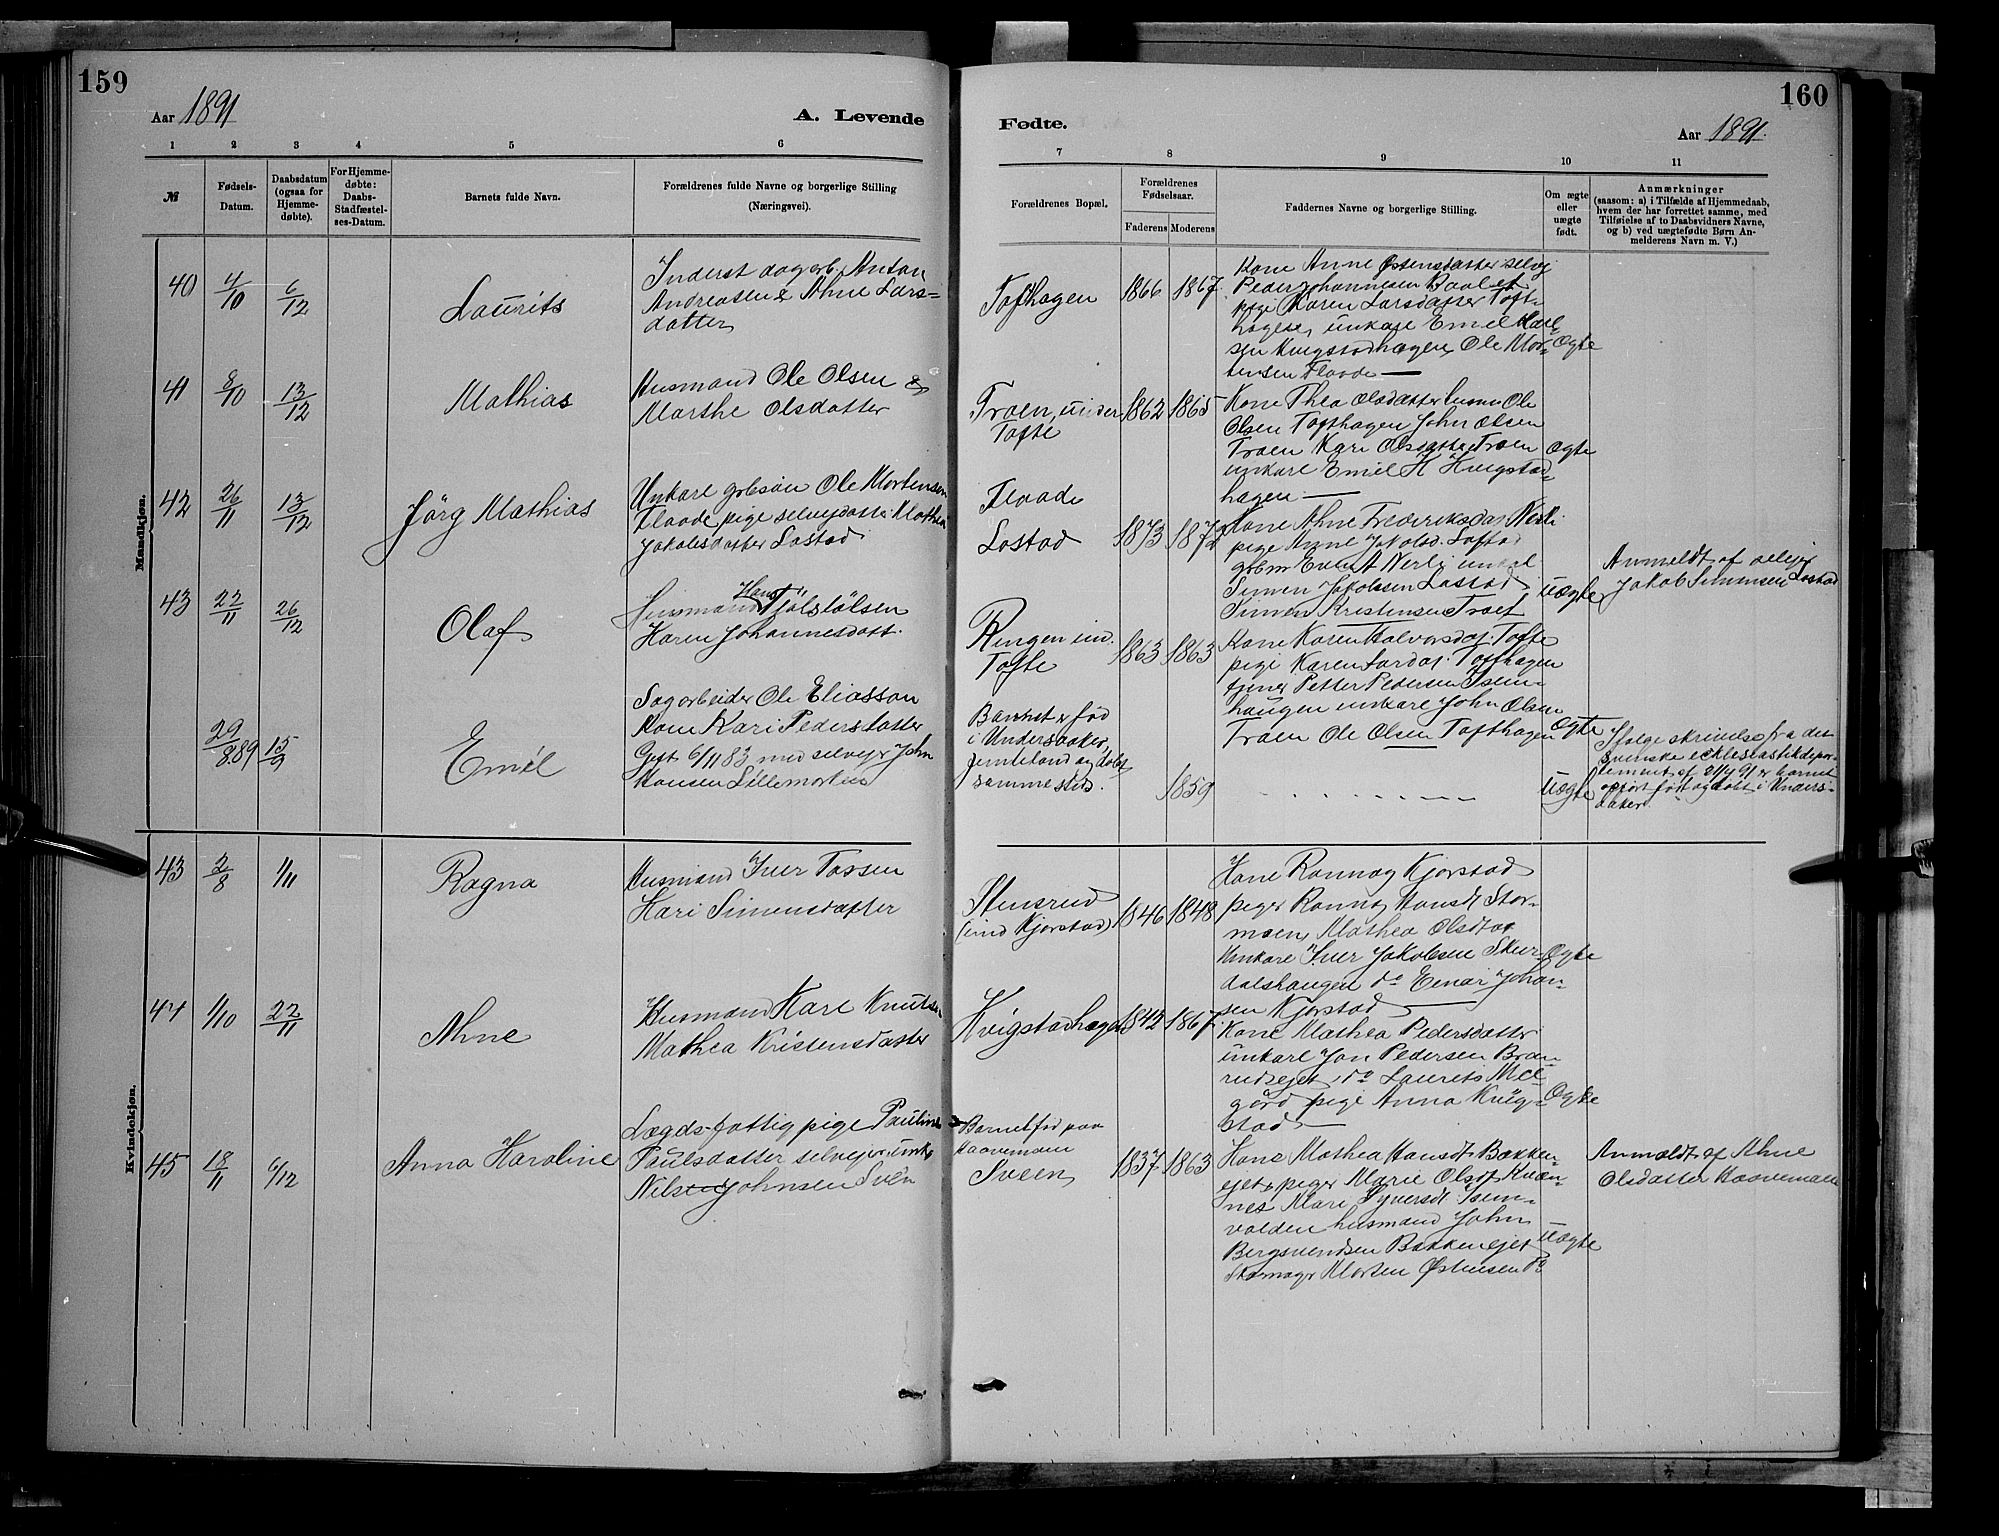 159
Aar 1891
A. Levende
1 2 3 4 5 6
№
Fødsels-Datum.
Daabsdatum (ogsaa for Hjemme-døbte).
For Hjemme-døbte: Daabs-Stadfæstel-ses-Datum.
Barnets fulde Navn.
Forældrenes fulde Navne og borgerlige Stilling
(Næringsvei).
Mandkjøn.
40 4/10 6/12 Laurits
Inderst dagarb. Anton
Andreasen & Ahne Lars-
datter
41 8/10 13/12 Mathias
Husmand Ole Olsen &
Marthe Olsdatter
42 26/11 13/12 Jörg Mathias
Unkare grbsön Ole Mortensen
Flaade pige selvejdatter Mathea
Jakobsdatter Lostad
43 22/11 26/12 Olaf
Husmand Hans Tjölstölsen
Karen Johannesdatt.
29/8.89 15/9 Emil
Sagarbeider Ole Eliasson
Kone Kari Pedersdatter
Gift 6/11 83 med selvejer John
Hansen Lillemortens
Kvindekjøn.
43 2/8 1/11 Ragna
Husmand Iver Tossen
Kari Simensdatter
44 1/10 22/11 Ahne
Husmand Karl Knutsen
Mathea Kristensdatter
45 18/11 6/12 Anna Karoline
Lægds-fattig pige Pauline
Paulsdatter selvejer unk.
Nils Johnsen Sven
160
Fødte.
Aar 1891.
7 8 9 10 11
Forældrenes Bopæl.
Forældrenes Fødselsaar.
Faderens Moderens
Faddernes Navne og borgerlige Stilling.
Om ægte eller uægte født.
Anmærkninger
(saasom: a) i Tilfælde af Hjemmedaab,
hvem der har forrettet samme, med
Tilføielse af to Daabsvidners Navne,
og b) ved uægtefødte Børn An-
melderens Navn m. V.)
Tofthagen 1866 1867
Kone Anne Østensdatter selvej
Peder Johannesen
pige Karen Larsdatter Toft-
hagen, unkare Emil Karl-
sen Kvigstadhagen, Ole Mor-
tensen Flaade —
Ægte
Troen, under
Tofte
1862 1865
Kone Thea Olsdatter husm Ole
Olsen Tofthagen John Olsen
Troen Kari Olsdatter Troen
unkare Emil K Kvigstad-
hagen —
ægte
Flaade
Lostad
1873 1872
Kone Ahne Frederiksdat. Nerli
pige Anne Jakobsd. Lostad
A Nerli unkal
Simen Jakobsen Lostad
Simen Kristensen Troet
uægte
Anmeldt af selvej
Jakob Simensen Lostad
Ringen und.
Tofte
1863 1863
Kone Karen Halvorsdat. Tofte
pige Karen Larsdat. Tofthagen
tjener Petter Pedersen Isum-
haugen unkare John Olsen
Troen Ole Olsen Tofthagen
Ægte
Barnet er fød
i Undersaaker,
Jemteland og døbt
sammesteds.
1859
uægte
Ifølge skrivelse fra det
svenske ecklesiastikdepar-
tement af 21/4 91 er barnet
opført født og døbt i Unders-
aaker.
Stensrud
(und Kjorstad)
1846 1848
Kone Rannog Kjorstad
piger Rannog Hansdt Stor-
moen, Mathea Olsdt do
Unkare Iver Jakobsen Skur-
dalshaugen do Einar Johan-
sen Kjorstad —
Ægte
Kvigstadhagen 1842 1867
Kone Mathea Pedersdatter
unkare Jon Pedersen Bran-
rudsejet, do Laurits Mel-
gård pige Anna Kvig-
stad —
Ægte
Barnet fød paa
Haavemoen
Sveen
1837 1863
Kone Mathea Hansdt Bakken-
ejet, piger Marie Olsdt Kvæn-
nes Mari Syversdt Isum-
volden husmand John
Bergsvendsen Bakkenejet
Skomagr Morten Østensen do
uægte
Anmeldt af Ahne
Olsdatter Haavemoen